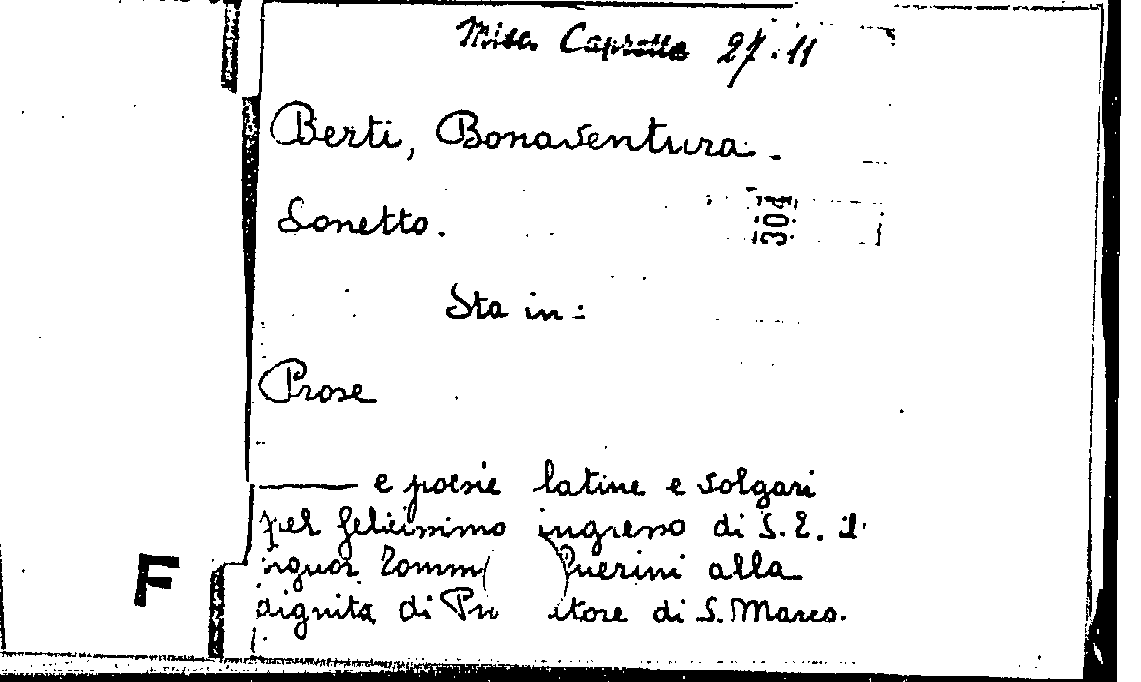 Misc. Capretta 27.11
Berti, Bonaventura.
304
Sonetto.
Sta in:
Prose
——— e poesie latine e volgari
pel felicissimo ingresso di S. E. il
signor Tomm Querini alla
F
dignità di Pr itore di S. Marco.